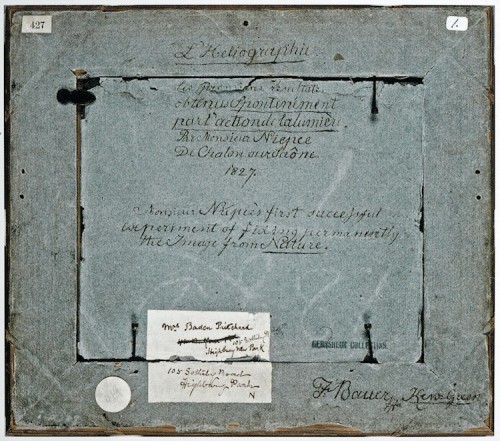 427
1.
L'Heliographie.
Les premiers resultats
obtenus Spontanément
par l'action de la lumière.
Par Monsieur Niepce
De Chalon sur Saône.
1827.
Monsieur Niepce's first successful
experiment of fixing permanently
the Image from Nature.
Mrs Baden Pritchard
Highbury New Park
105 Road
Highbury Park
N
GERNSHEIM COLLECTION.
F. Bauer Kew Green